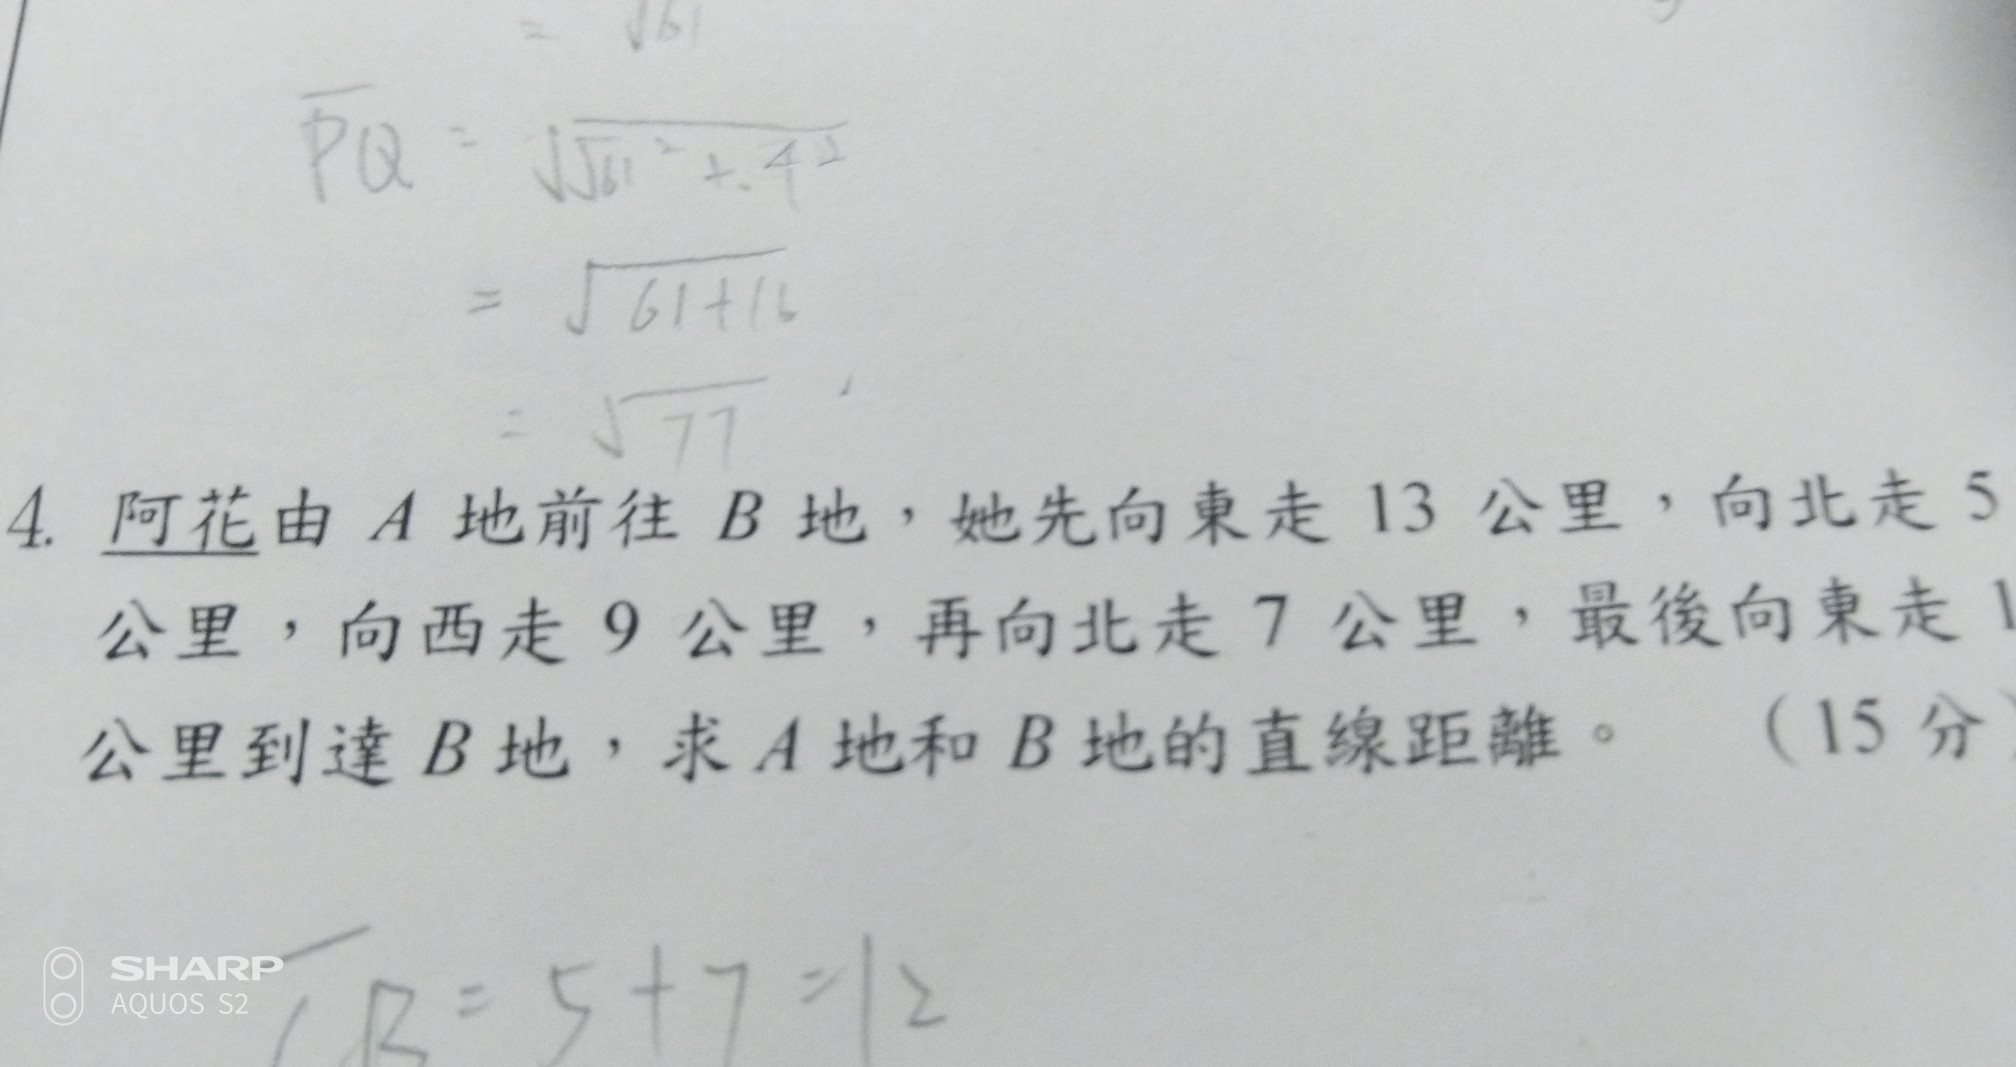 = √61
PQ = √√61² + 4²
= √61+16
= √77
4. 阿花由 A 地前往 B 地，她先向東走 13 公里，向北走 5
公里，向西走 9 公里，再向北走 7 公里，最後向東走 1
公里到達 B 地，求 A 地和 B 地的直線距離。 （15 分）
B = 5+7=12
SHARP
AQUOS S2